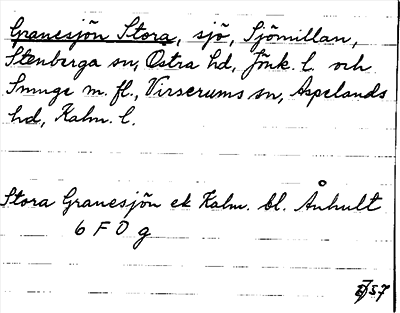 Granesjön Stora, sjö, Sjömillan,
Stenberga sn, Östra hd, Jönk. l. och
Smuge m. fl., Virserums sn, Aspelands
hd, Kalm. l.
Stora Granesjön ek Kalm. bl. Ånhult
6 F 0 g
57